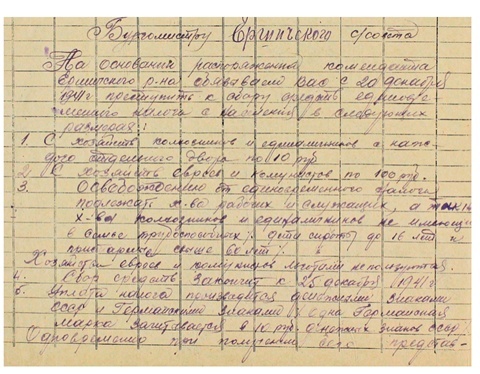 Бургомистру Ергинского с/совета
На основании распоряжения коменданта
р-на обязываем Вас с 20 декабря
1941 г приступить к сбору средств единовре-
менного налога с населения в следующих
размерах:
1. С хозяйств колхозников и единоличников с каж-
дого отдельного двора по 10 руб
2. С хозяйств евреев и комунистов по 100 руб.
3. Освобождению от единовременного налога
подлежат х-ва рабочих и служащих, а также
х-ва колхозников и единоличников не имеющих
в семье трудоспособных: дети сироты до 16 лет и
престарелые свыше 60 лет.
Хозяйства евреев и комунистов льготами не пользуются.
4. Сбор средств закончить к 25 декабря 1941 г
5. Уплата налога производится денежными знаками
СССР и Германскими знаками: одна Германская
марка засчитывается в 10 руб. денежных знаков СССР.
Одновременно при получении сего представ-